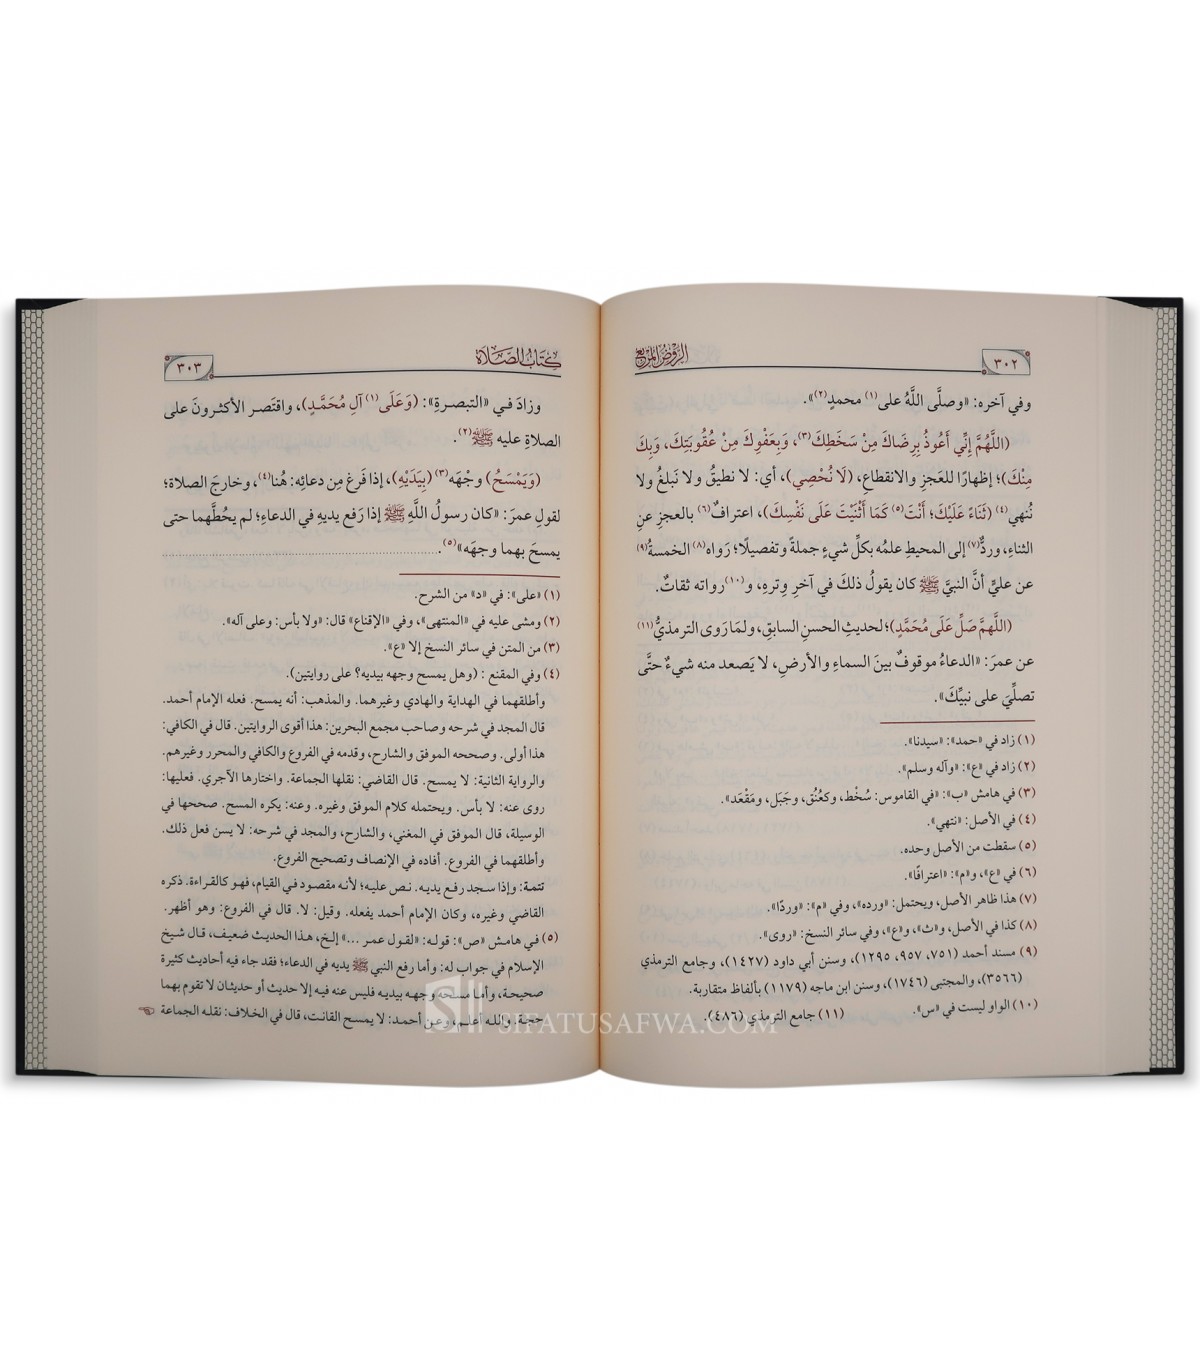 ٣٠٢
الروض المربع
وفي آخره: «وصلَّى اللَّهُ على(١) محمدٍ(٢)».
(اللَّهُمَّ إِنِّي أَعُوذُ بِرِضَاكَ مِنْ سَخَطِكَ(٣)، وَبِعَفْوِكَ مِنْ عُقُوبَتِكَ، وَبِكَ
مِنْكَ)؛ إظهارًا للعَجزِ والانقطاعِ، (لَا نُحْصِي)، أي: لا نطيقُ ولا نَبلغُ ولا
نُنهي(٤) (ثَنَاءً عَلَيْكَ؛ أَنْتَ(٥) كَمَا أَثْنَيْتَ عَلَى نَفْسِكَ)، اعترافٌ(٦) بالعجزِ عنِ
الثناءِ، وردٌّ(٧) إلى المحيطِ علمُه بكلِّ شيءٍ جملةً وتفصيلًا؛ رَواه(٨) الخمسةُ(٩)
عن عليٍّ أنَّ النبيَّ ﷺ كان يقولُ ذلكَ في آخرِ وِترِهِ، و(١٠)رواته ثقاتٌ.
(اللَّهمَّ صَلِّ عَلَى مُحَمَّدٍ)؛ لحديثِ الحسنِ السابقِ، ولمَا رَوى الترمذيُّ(١١)
عن عمرَ: «الدعاءُ موقوفٌ بينَ السماءِ والأرضِ، لا يَصعد منه شيءٌ حتَّى
تصلِّيَ على نبيِّكَ».
(١) زاد في «حمد»: «سيدنا».
(٢) زاد في «ع»: «وآله وسلم».
(٣) في هامش «ب»: «في القاموس: سُخْط، وكعُنُق، وجَبَل، ومَقْعَد».
(٤) في الأصل: «نتهي».
(٥) سقطت من الأصل وحده.
(٦) في «ع»، و«م»: «اعترافًا».
(٧) هذا ظاهر الأصل، ويحتمل: «ورده»، وفي «م»: «وردًا».
(٨) كذا في الأصل، و«ث»، و«ع»، وفي سائر النسخ: «روى».
(٩) مسند أحمد (٧٥١، ٩٥٧، ١٢٩٥)، وسنن أبي داود (١٤٢٧)، وجامع الترمذي
(٣٥٦٦)، والمجتبى (١٧٤٦)، وسنن ابن ماجه (١١٧٩) بألفاظ متقاربة.
(١٠) الواو ليست في «س». (١١) جامع الترمذي (٤٨٦).
كتاب الصلاة
٣٠٣
وزادَ في «التبصرةِ»: (وَعَلَى(١) آلِ مُحَمَّدٍ)، واقتَصر الأكثرونَ على
الصلاةِ عليه ﷺ(٢).
(وَيَمْسَحُ) وجْهَه(٣) (بِيَدَيْهِ)، إذا فَرغ مِن دعائِه: هُنا(٤)، وخارجَ الصلاة؛
لقولِ عمرَ: «كان رسولُ اللَّهِ ﷺ إذا رَفع يديهِ في الدعاءِ؛ لم يحُطَّهما حتى
يمسحَ بهما وجهَه»(٥).
(١) «على»: في «د» من الشرح.
(٢) ومشى عليه في «المنتهى»، وفي «الإقناع» قال: «ولا بأس: وعلى آله».
(٣) من المتن في سائر النسخ إلا «ع».
(٤) وفي المقنع : (وهل يمسح وجهه بيديه؟ على روايتين).
وأطلقهما في الهداية والهادي وغيرهما. والمذهب: أنه يمسح. فعله الإمام أحمد.
قال المجد في شرحه وصاحب مجمع البحرين: هذا أقوى الروايتين. قال في الكافي:
هذا أولى. وصححه الموفق والشارح، وقدمه في الفروع والكافي والمحرر وغيرهم.
والرواية الثانية: لا يمسح. قال القاضي: نقلها الجماعة. واختارها الآجري. فعليها:
روى عنه: لا بأس. ويحتمله كلام الموفق وغيره. وعنه: يكره المسح. صححها في
الوسيلة، قال الموفق في المغني، والشارح، والمجد في شرحه: لا يسن فعل ذلك.
وأطلقهما في الفروع. أفاده في الإنصاف وتصحيح الفروع.
تتمة: وإذا سجد رفع يديه. نص عليه؛ لأنه مقصود في القيام، فهو كالقراءة. ذكره
القاضي وغيره، وكان الإمام أحمد يفعله. وقيل: لا. قال في الفروع: وهو أظهر.
(٥) في هامش «ص»: قوله: «لقول عمر ...» إلخ، هذا الحديث ضعيف، قال شيخ
الإسلام في جواب له: وأما رفع النبي ﷺ يديه في الدعاء؛ فقد جاء فيه أحاديث كثيرة
صحيحة، وأما مسحه وجهه بيديه فليس عنه فيه إلا حديث أو حديثان لا تقوم بهما
حجة. والله أعلم، وعن أحمد: لا يمسح القانت، قال في الخلاف: نقله الجماعة
SIFATUSAFWA.COM